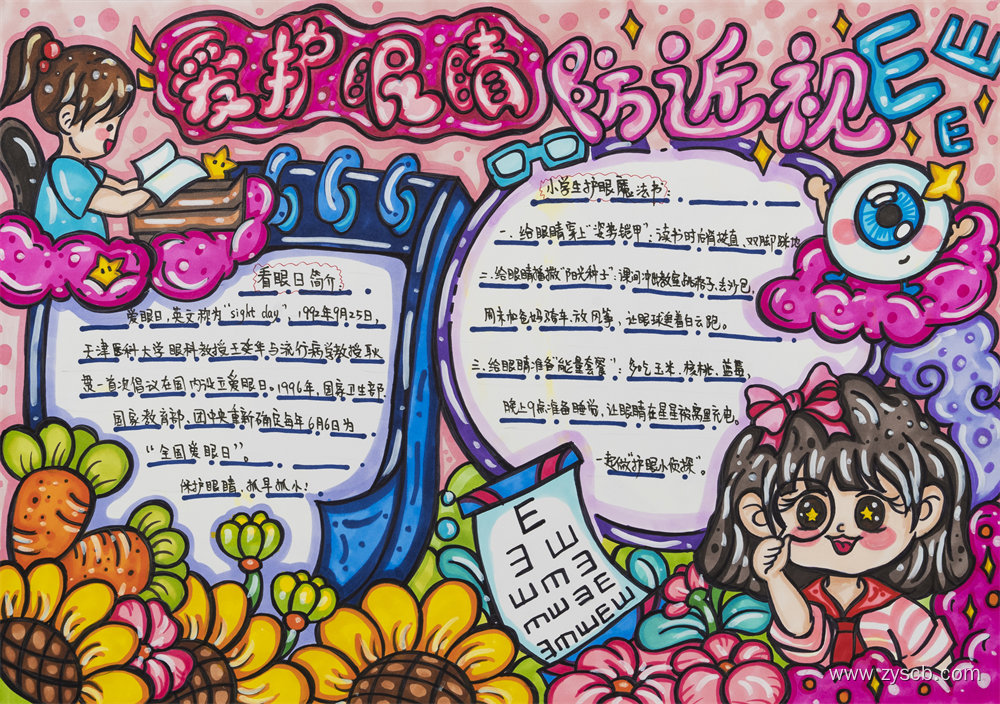 爱护眼睛
防近视
E E E
看眼日简介
爱眼日,英文称为“sight day”,1992年9月25日,
天津医科大学眼科教授王延华与流行病学教授耿
贯一首次倡议在国内设立爱眼日。1996年,国家卫生部
国家教育部、团中央重新确定每年6月6日为
“全国爱眼日”。
保护眼睛,抓早抓小!
小学生护眼魔法书
一.给眼睛穿上“姿势铠甲”:读书时后背挺直、双脚踩地
二.给眼睛播撒“阳光种子”:课间冲出教室跳格子、去沙包,
周末和爸妈骑车、放风筝,让眼球追着白云跑。
三.给眼睛准备“能量套餐”:多吃玉米、核桃、蓝莓,
晚上9点准备睡觉,让眼睛在星星被窝里充电。
一起做“护眼小侦探”。
E
E E
E W E
E W E E
E M E W E W
www.zyscb.com